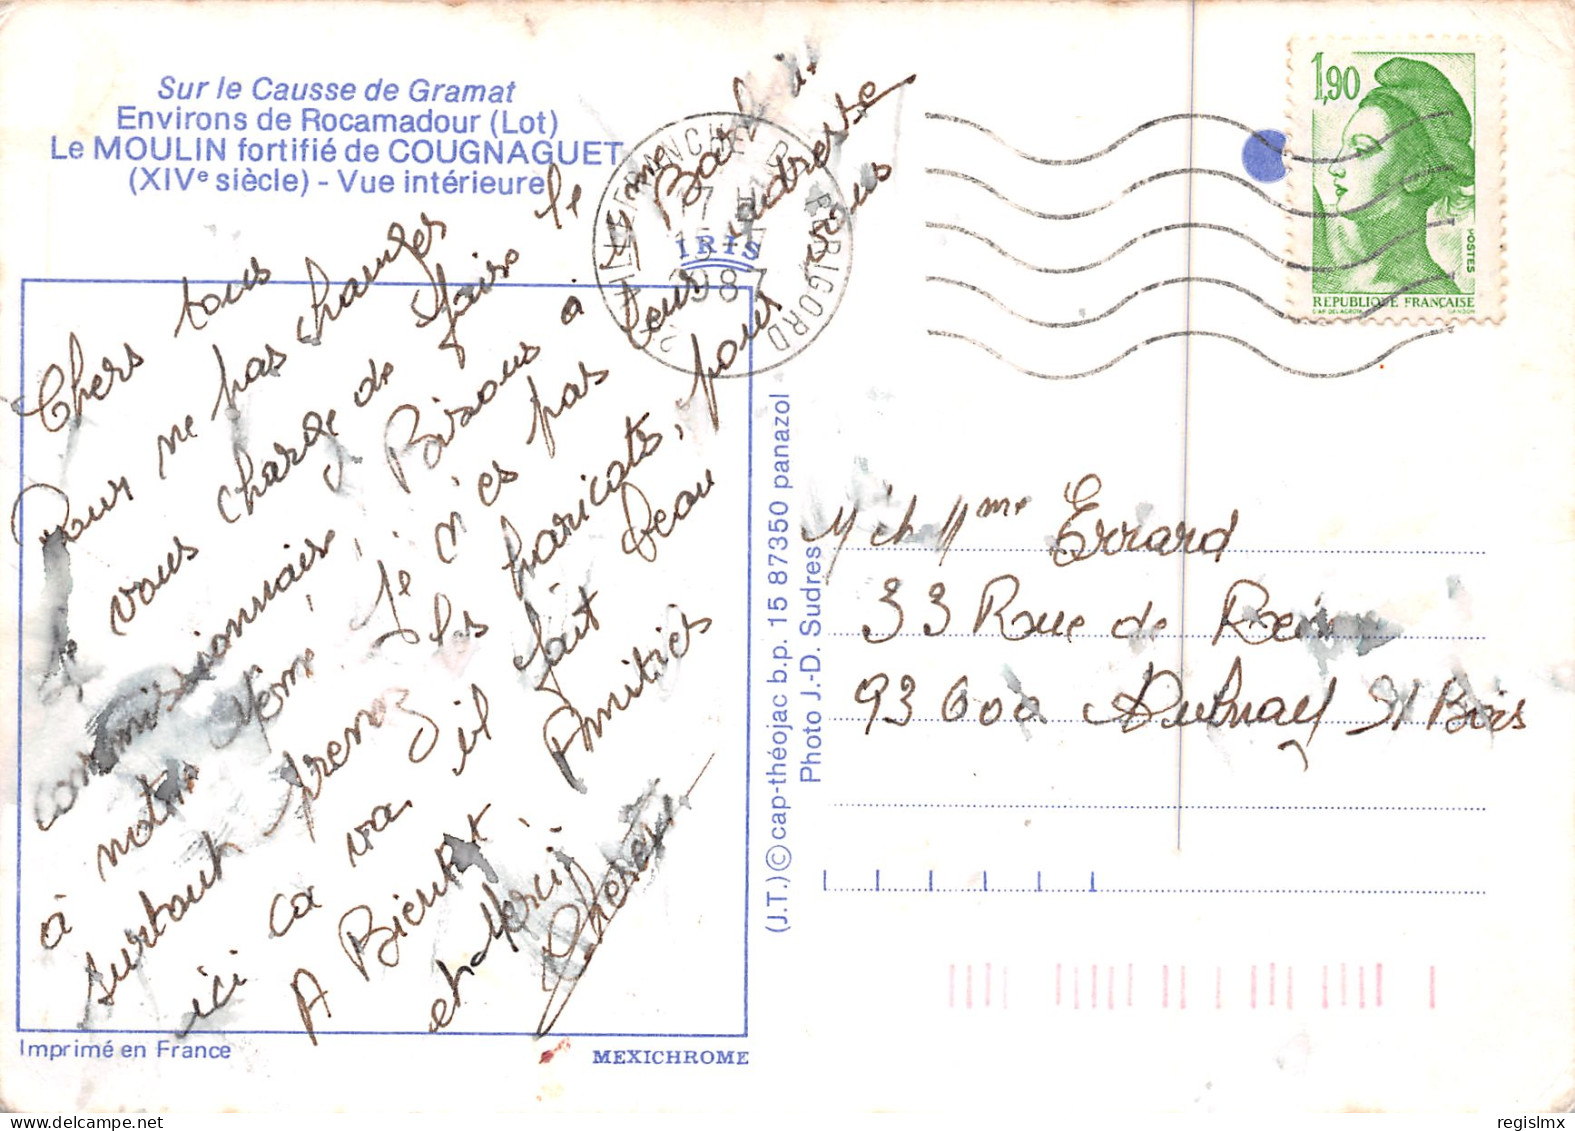 Sur le Causse de Gramat
Environs de Rocamadour (Lot)
Le MOULIN fortifié de COUGNAGUET
(XIVe siècle) - Vue intérieure
Chers tous
Pour ne pas changer
je vous charge de faire le
commissionnaire, Bisous à
à notre Mémé, je n'ai pas leur adresse
surtout prenez les haricots, pour vous
ici ça va il fait beau
A Bientôt Amitiés
et Merci
IRIS
1987
PERIGORD
1,90
POSTES
RÉPUBLIQUE FRANÇAISE
D'AP. DELACROIX GANDON
M et Mme Errard
33 Rue de
93600 Aulnay S/ Bois
(J.T.) © cap-théojac b.p. 15 87350 panazol
Photo J.-D. Sudres
Imprimé en France
MEXICHROME
regislmx